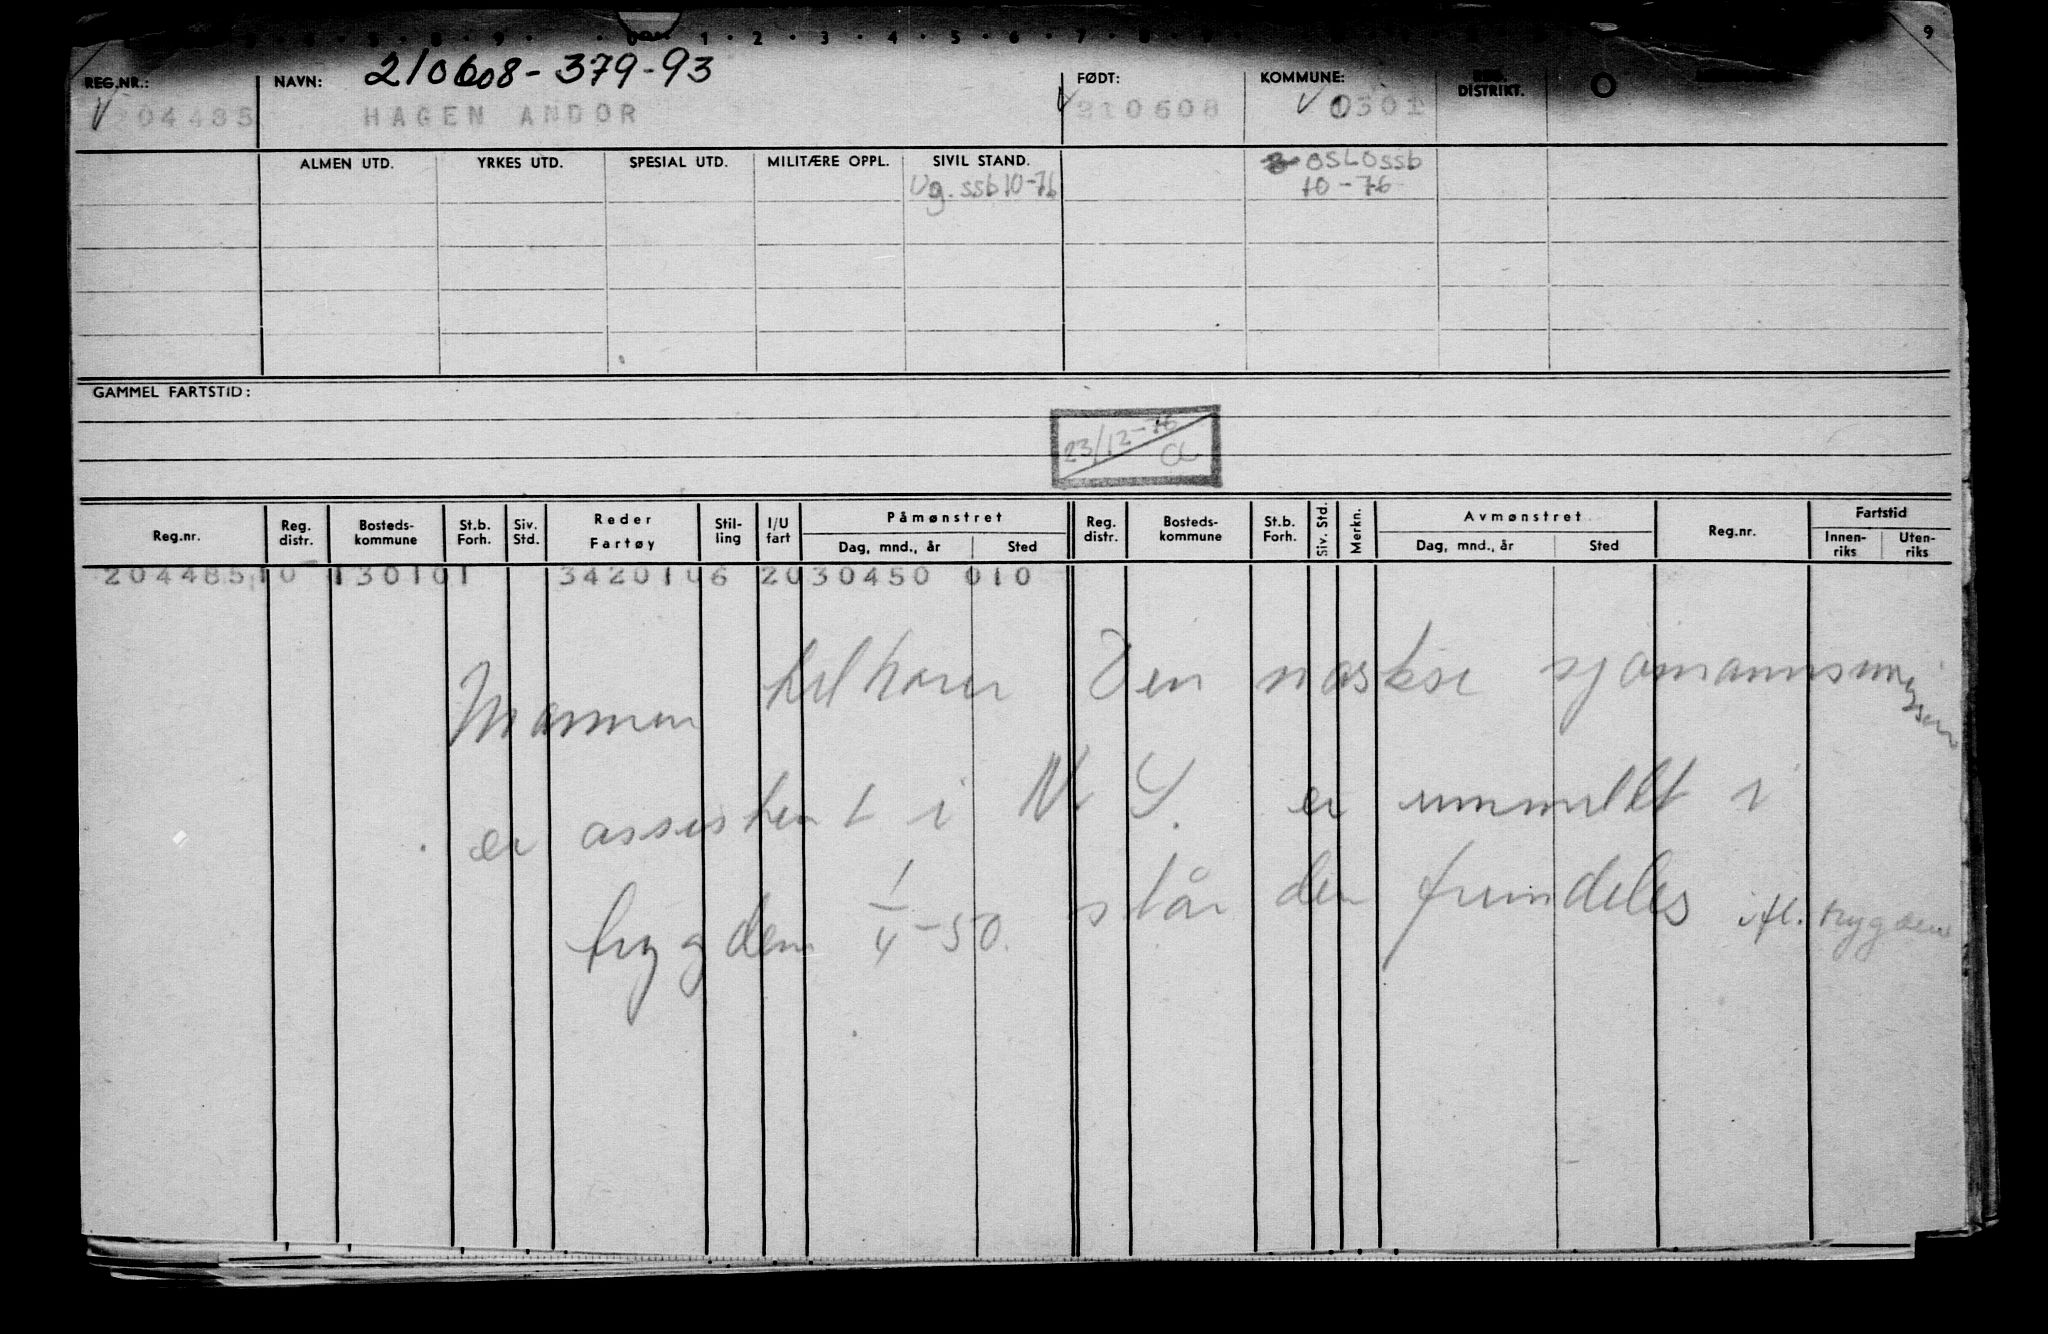 9
210608-379-93
REG.NR.: NAVN: FØDT: KOMMUNE: REG. DISTRIKT. O
204485 HAGEN ANDOR 210608 0301
ALMEN UTD. YRKES UTD. SPESIAL UTD. MILITÆRE OPPL. SIVIL STAND.
Ug. ssb 10-76 OSLO ssb
10-76
GAMMEL FARTSTID:
23/12-76
Reg.nr. Reg. distr. Bosteds-kommune St.b. Forh. Siv. Std. Reder Fartøy Stil-ling I/U fart Påmønstret Dag, mnd., år Sted Reg. distr. Bosteds-kommune St.b. Forh. Siv. Std. Merkn. Avmønstret Dag, mnd., år Sted Reg.nr. Fartstid Innen-riks Uten-riks
204485 10 130101 3420106 2030450 010
Mannen tilhører Den norske sjømannsmisjon
er assistent i N.Y. er innmeldt i
trygden 1/4-50. står den fremdeles ifl. trygden